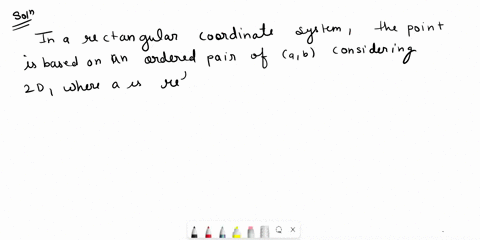 Solⁿ
In a rectangular coordinate system, the point
is based on an ordered pair of (a,b) considering
2D, where a is re